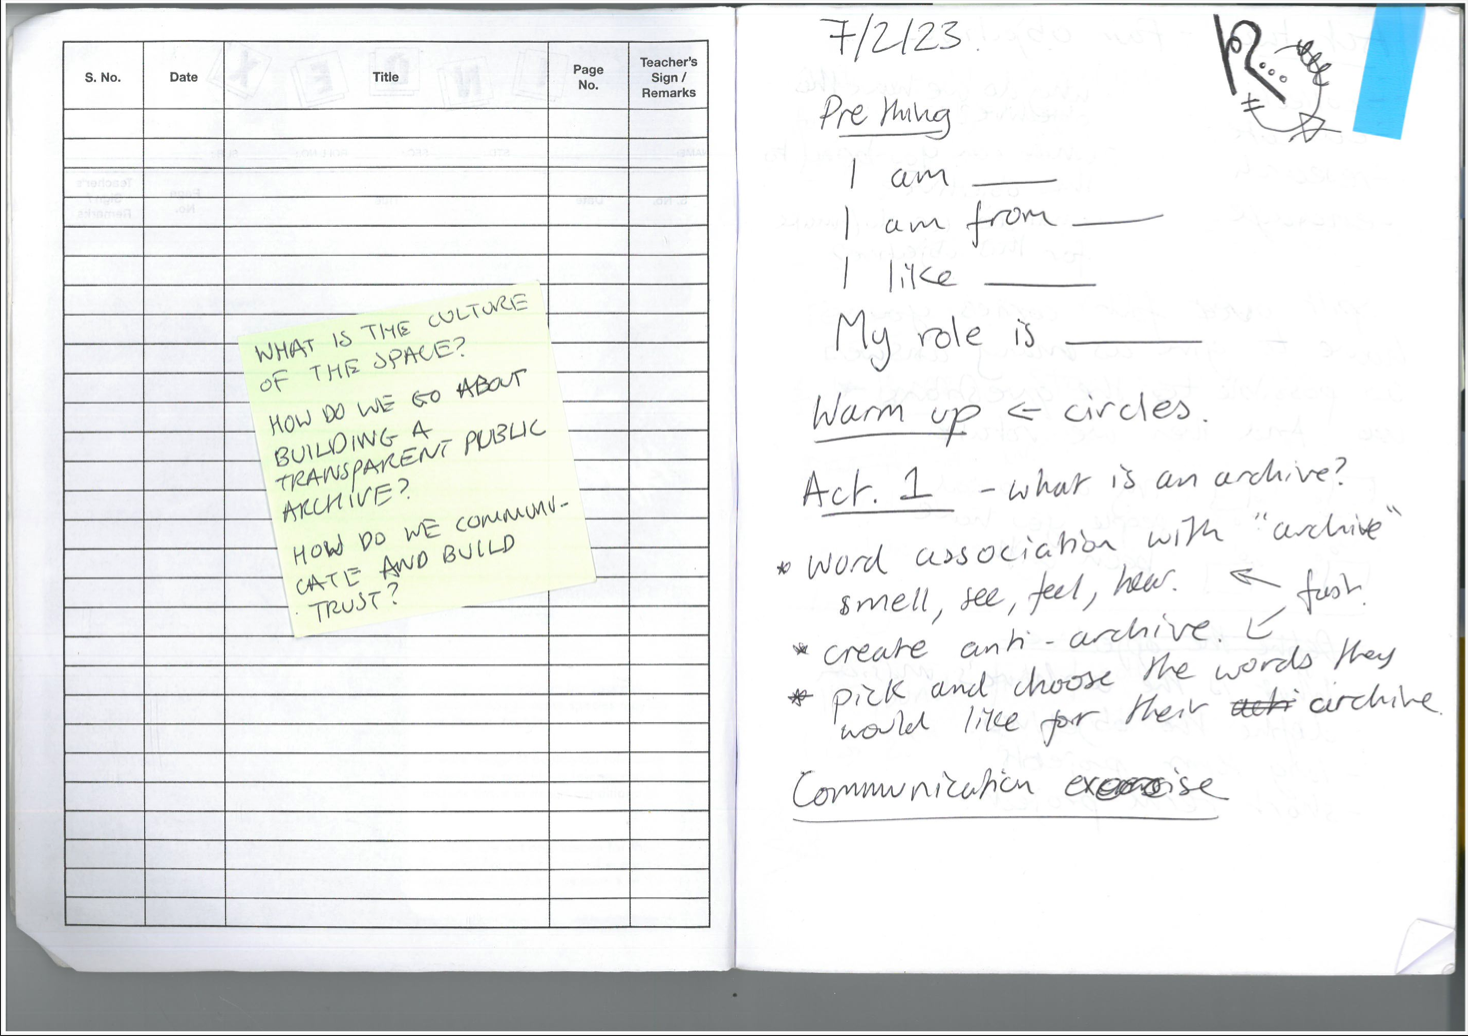 S. No.
Date
Title
Page No.
Teacher's Sign / Remarks
WHAT IS THE CULTURE
OF THE SPACE?
HOW DO WE GO ABOUT
BUILDING A
TRANSPARENT PUBLIC
ARCHIVE?
HOW DO WE COMMUNI-
CATE AND BUILD
TRUST?
7/2/23.
Pre thing
I am ____
I am from ____
I like ____
My role is ____
Warm up ← circles.
Act. 1 - what is an archive?
* word association with "archive"
smell, see, feel, hear. ← fast.
* create anti-archive. ↙
* pick and choose the words they
would like for their archive.
Communication exercise